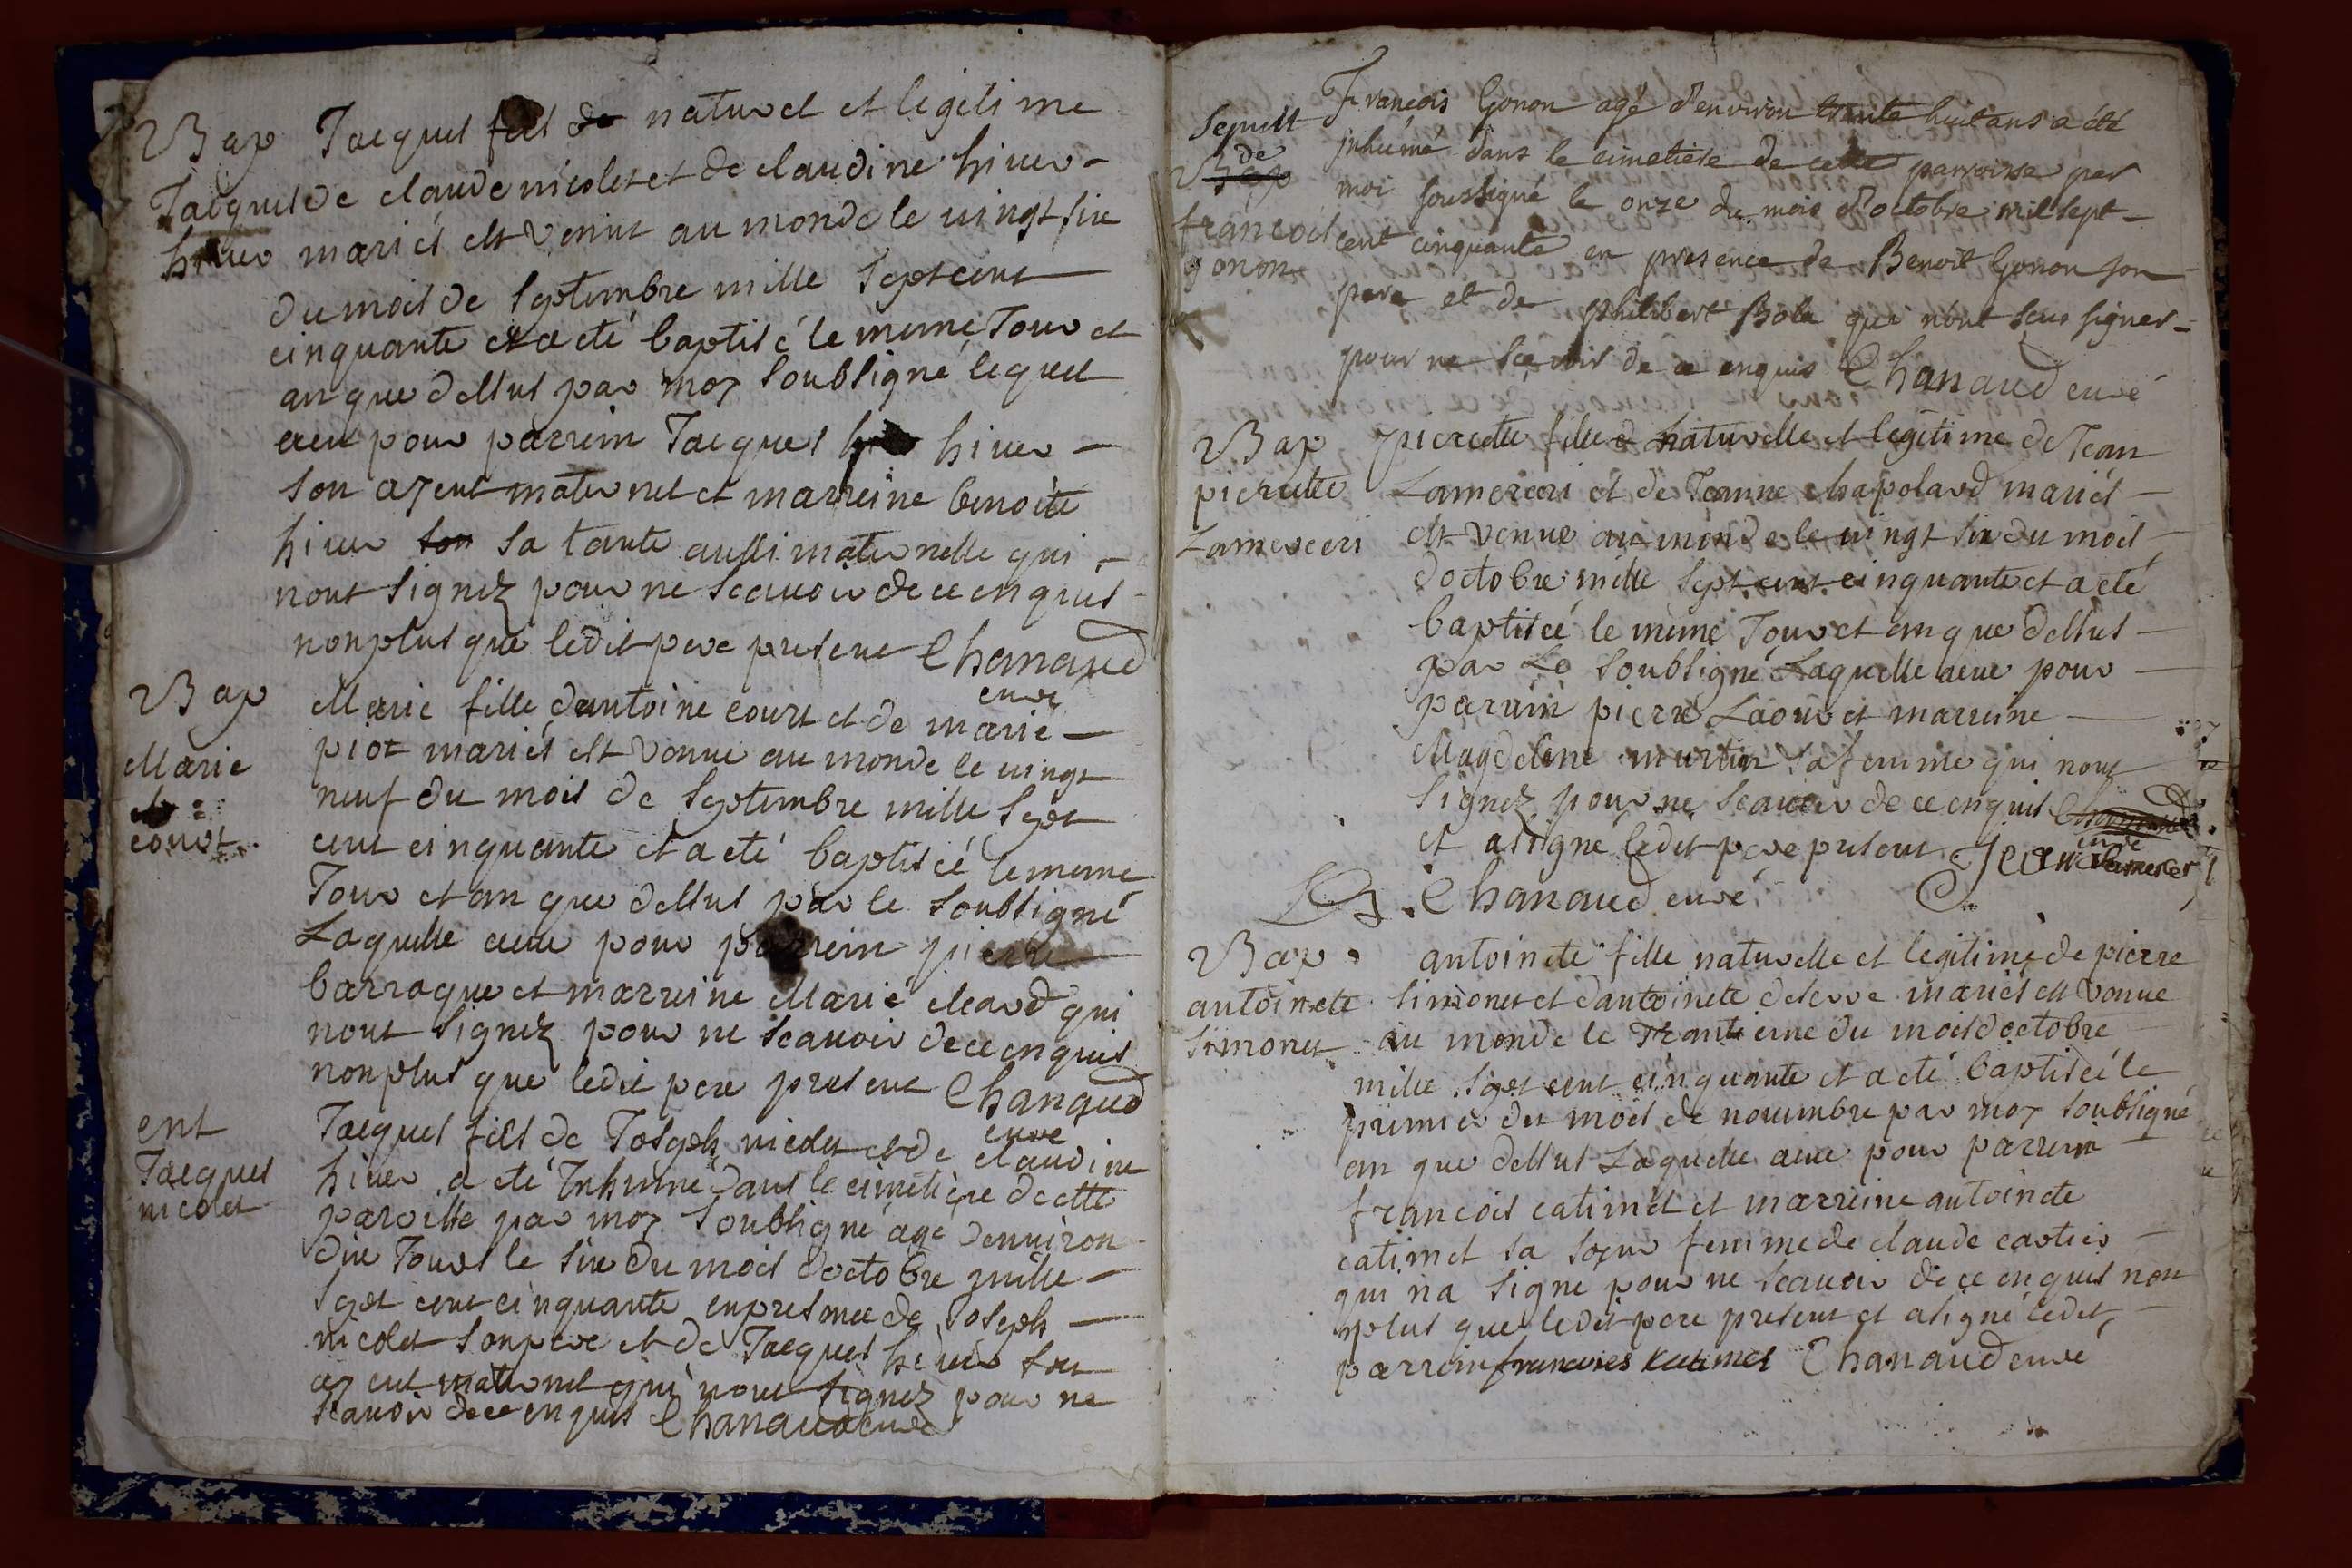 Bap
Jacques
hiver
Jacques fils de naturel et legitime
de claude nicolet et de claudine hiver -
mariés est venut au monde le vingt six
du mois de septembre mille sept cent
cinquante et a eté baptisé le meme Jour et
an que dessus par moy soubsigné lequel
a eu pour parrein Jacques hiver -
son ayeut maternel et marreine benoite
hiver son sa tante aussi maternelle qui -
nont signez pour ne scavoir de ce enquis -
non plus que ledit pere present Chanaud
curé
Bap
Marie
court
Marie fille dantoine court et de marie -
piot mariés est venue au monde le vingt
neuf du mois de septembre mille sept
cent cinquante et a eté baptiséé le meme
Jour et an que dessus par le soubsigné
Laquelle a eue pour parrein pierre
barraque et marreine Marie cleard qui
nont signez pour ne scavoir de ce enquis
non plus que ledit pere present Chanaud
curé
ent
Jacques
nicolet
Jacques fils de Joseph nicolet et de claudine
hiver a eté Inhumé dans le cimetiere de cette
paroisse par moy soubsigné agé denviron
dix Jours le six du mois doctobre mille -
sept cent cinquante en presence de Joseph -
nicolet son pere et de Jacques hiver son
ayeut maternel qui nont signez pour ne
scavoir de ce enquis Chanaud curé
Sepult
de
Bap
francois
gonon
François Gonon agé d'environ trente huit ans a été
inhumé dans le cimetiere de cette parroisse par
moi soussigné le onze du mois d'octobre mil sept -
cent cinquante en presence de Benoit Gonon son -
pere et de philibert Bola qui n'ont sçus signer -
pour ne sçavoir de ce enquis Chanaud curé
Bap
pierrette
Lamerceri
pierrette fille naturelle et legitime de Jean
Lamerceri et de Jeanne chapolard mariés -
est venue au monde le vingt six du mois -
doctobre mille sept cent cinquante et a eté
baptiséé le meme Jour et an que dessus -
par Le soubsigné Laquelle a eue pour -
parrain pierre Laour et marreine -
Magdelene murtin sa femme qui nont
signez pour ne scavoir de ce enquis Chanaud
curé
et a signé ledit pere present Jean Lamerceri
Chanaud curé
Bap
antoinete
simonet
antoinete fille naturelle et legitime de pierre
simonet et dantoinete deserve mariés est venue
au monde le Trantieme du mois doctobre
mille sept cent cinquante et a eté baptiséé le
premier du mois de novembre par moy soubsigné
an que dessus Laquelle a eue pour parrein
francois catimet et marreine antoinete
catimet sa soeur femme de claude cartier -
qui na signé pour ne scavoir de ce enquis non
plus que ledit pere present et a signé ledit -
parrein francoies katimet Chanaud curé